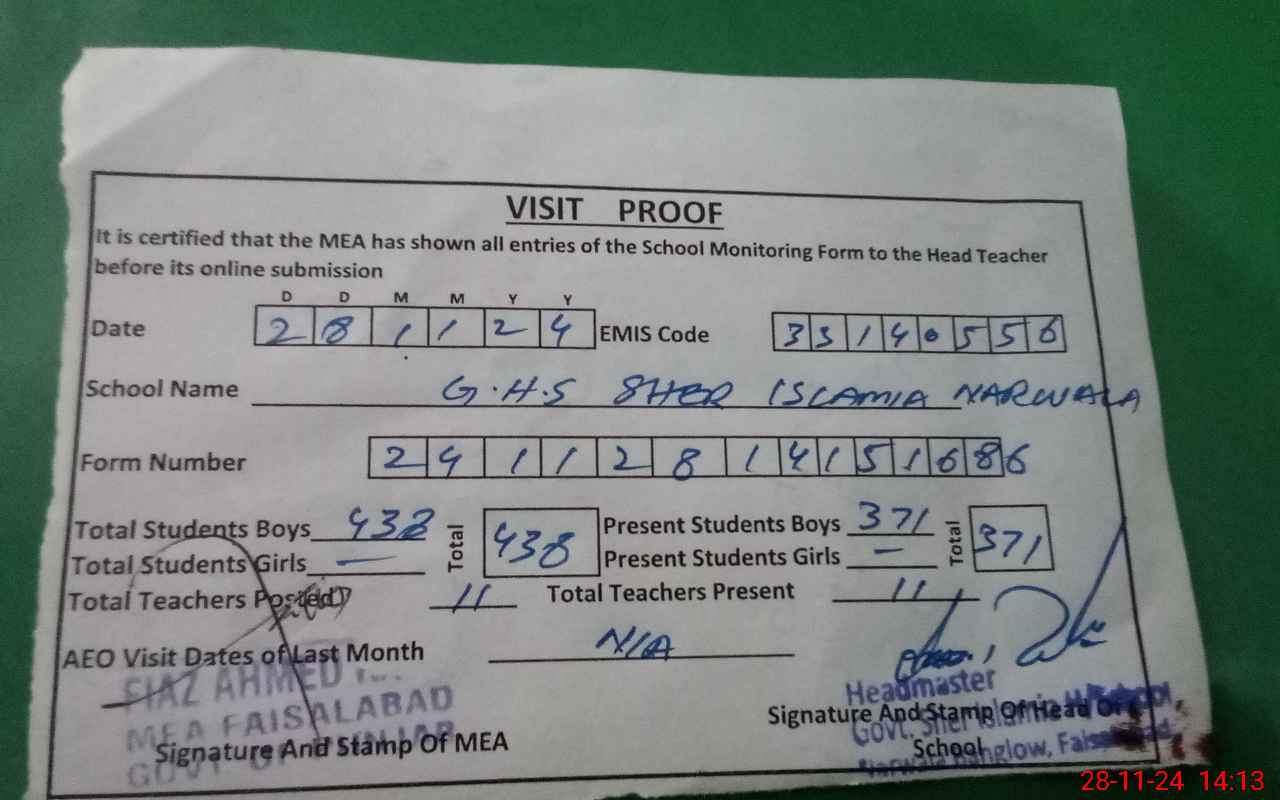 VISIT PROOF
It is certified that the MEA has shown all entries of the School Monitoring Form to the Head Teacher
before its online submission
D D M M Y Y
Date 2 8 1 1 2 4 EMIS Code 3 3 1 4 0 5 5 6
School Name G.H.S SHER ISLAMIA NARWALA
Form Number 2 4 1 1 2 8 1 4 1 5 1 6 8 6
Total Students Boys 438 Total 438 Present Students Boys 371 Total 371
Total Students Girls — Present Students Girls —
Total Teachers Posted 11 Total Teachers Present 11
AEO Visit Dates of Last Month N/A
FIAZ AHMED
MEA FAISALABAD
Signature And Stamp Of MEA
Headmaster
Signature And Stamp Of Head Of
Govt. Sher Islamia
School
Narwala Banglow,
28-11-24 14:13